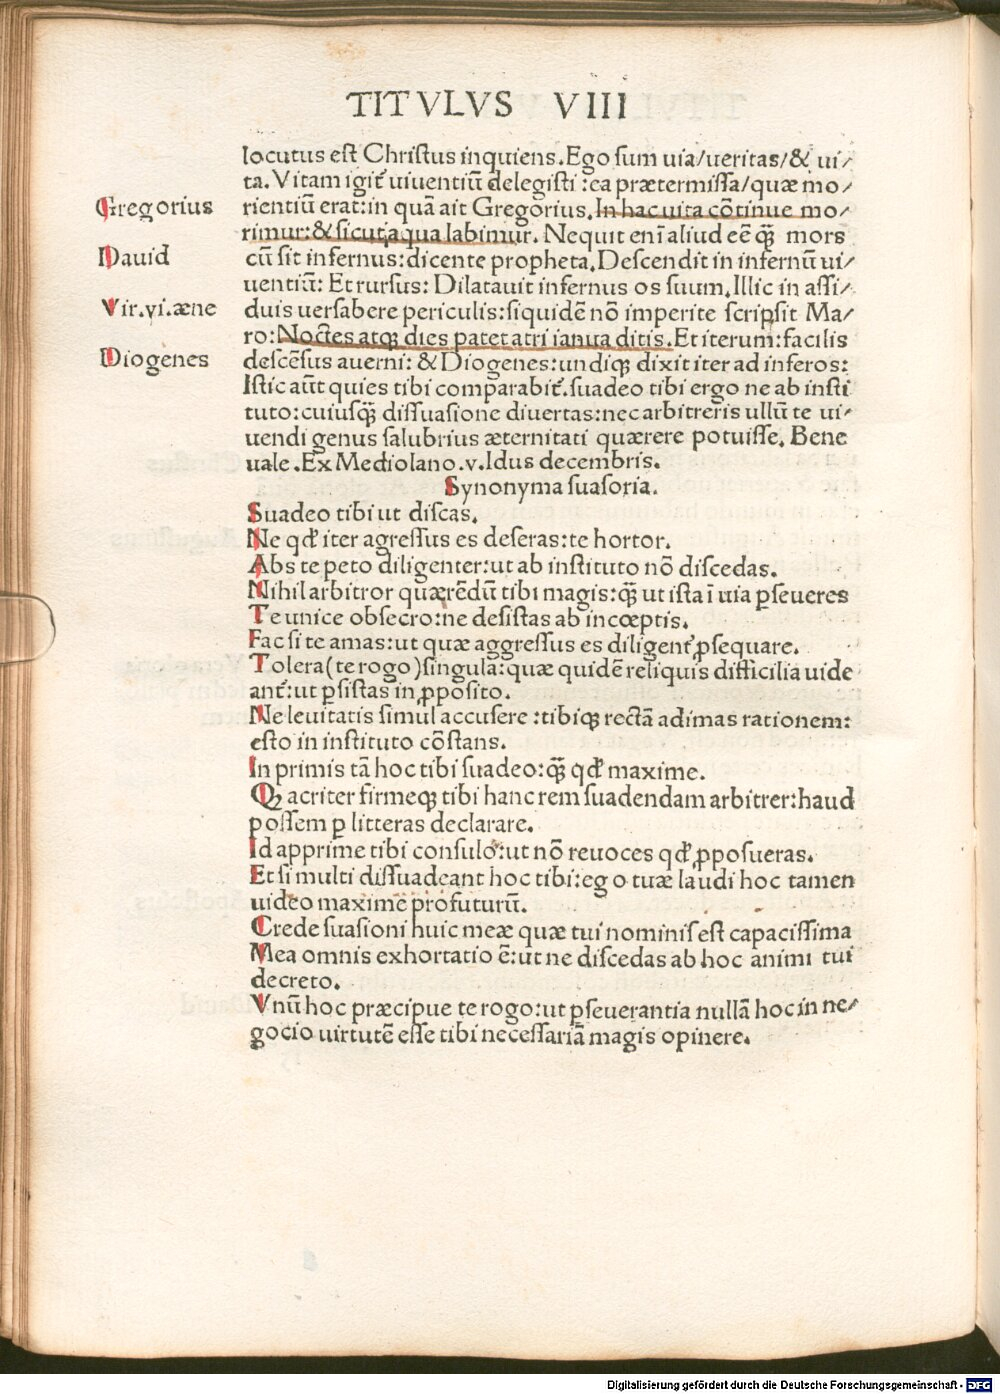 TITVLVS VIII
locutus est Christus inquiens. Ego sum uia/ueritas/& ui/
ta. Vitam igit᷑ uiuentiū delegisti : ea prætermissa/quæ mo/
Gregorius
rientiū erat: in quā ait Gregorius. In hac uita cōtinue mo/
rimur: & sicut aqua labimur. Nequit eni aliud eē q̄ꝫ mors
Dauid
cū sit infernus: dicente propheta. Descendit in infernū ui/
uentiū: Et rursus: Dilatauit infernus os suum. Illic in assi/
Vir.vi.æne
duis uersabere periculis: siquidē nō imperite scripsit Ma/
ro: Noctes atqꝫ dies patet atri ianua ditis. Et iterum: facilis
Diogenes
descēsus auerni: & Diogenes: undiqꝫ dixit iter ad inferos:
Istic aūt quies tibi comparabit᷑. suadeo tibi ergo ne ab insti
tuto: cuiusq̄ꝫ dissuasione diuertas: nec arbitreris ullū te ui/
uendi genus salubrius æternitati quærere potuisse. Bene
uale. Ex Mediolano .v. Idus decembris.
Synonyma suasoria.
Suadeo tibi ut discas.
Ne qđ iter agressus es deseras: te hortor.
Abs te peto diligenter: ut ab instituto nō discedas.
Nihil arbitror quærēdū tibi magis: q̄ꝫ ut ista ī uia ꝑseueres
Te unice obsecro: ne desistas ab incœptis.
Fac si te amas: ut quæ aggressus es diligent᷑ ꝓsequare.
Tolera (te rogo) singula: quæ quidē reliquis difficilia uide
ant᷑: ut ꝑsistas in ꝓposito.
Ne leuitatis simul accusere : tibiqꝫ rectā adimas rationem:
esto in instituto cōstans.
In primis tā hoc tibi suadeo: q̄ꝫ qđ maxime.
Qꝫ acriter firmeqꝫ tibi hanc rem suadendam arbitrer: haud
possem ꝑ litteras declarare.
Id apprime tibi consulo: ut nō reuoces qđ ꝓposueras.
Et si multi dissuadeant hoc tibi: ego tuæ laudi hoc tamen
uideo maxime profuturū.
Crede suasioni huic meæ quæ tui nominis est capacissima
Mea omnis exhortatio ē: ut ne discedas ab hoc animi tui
decreto.
Vnū hoc præcipue te rogo: ut ꝑseuerantia nullā hoc in ne/
gocio uirtutē esse tibi necessariā magis opinere.
Digitalisierung gefördert durch die Deutsche Forschungsgemeinschaft - DFG